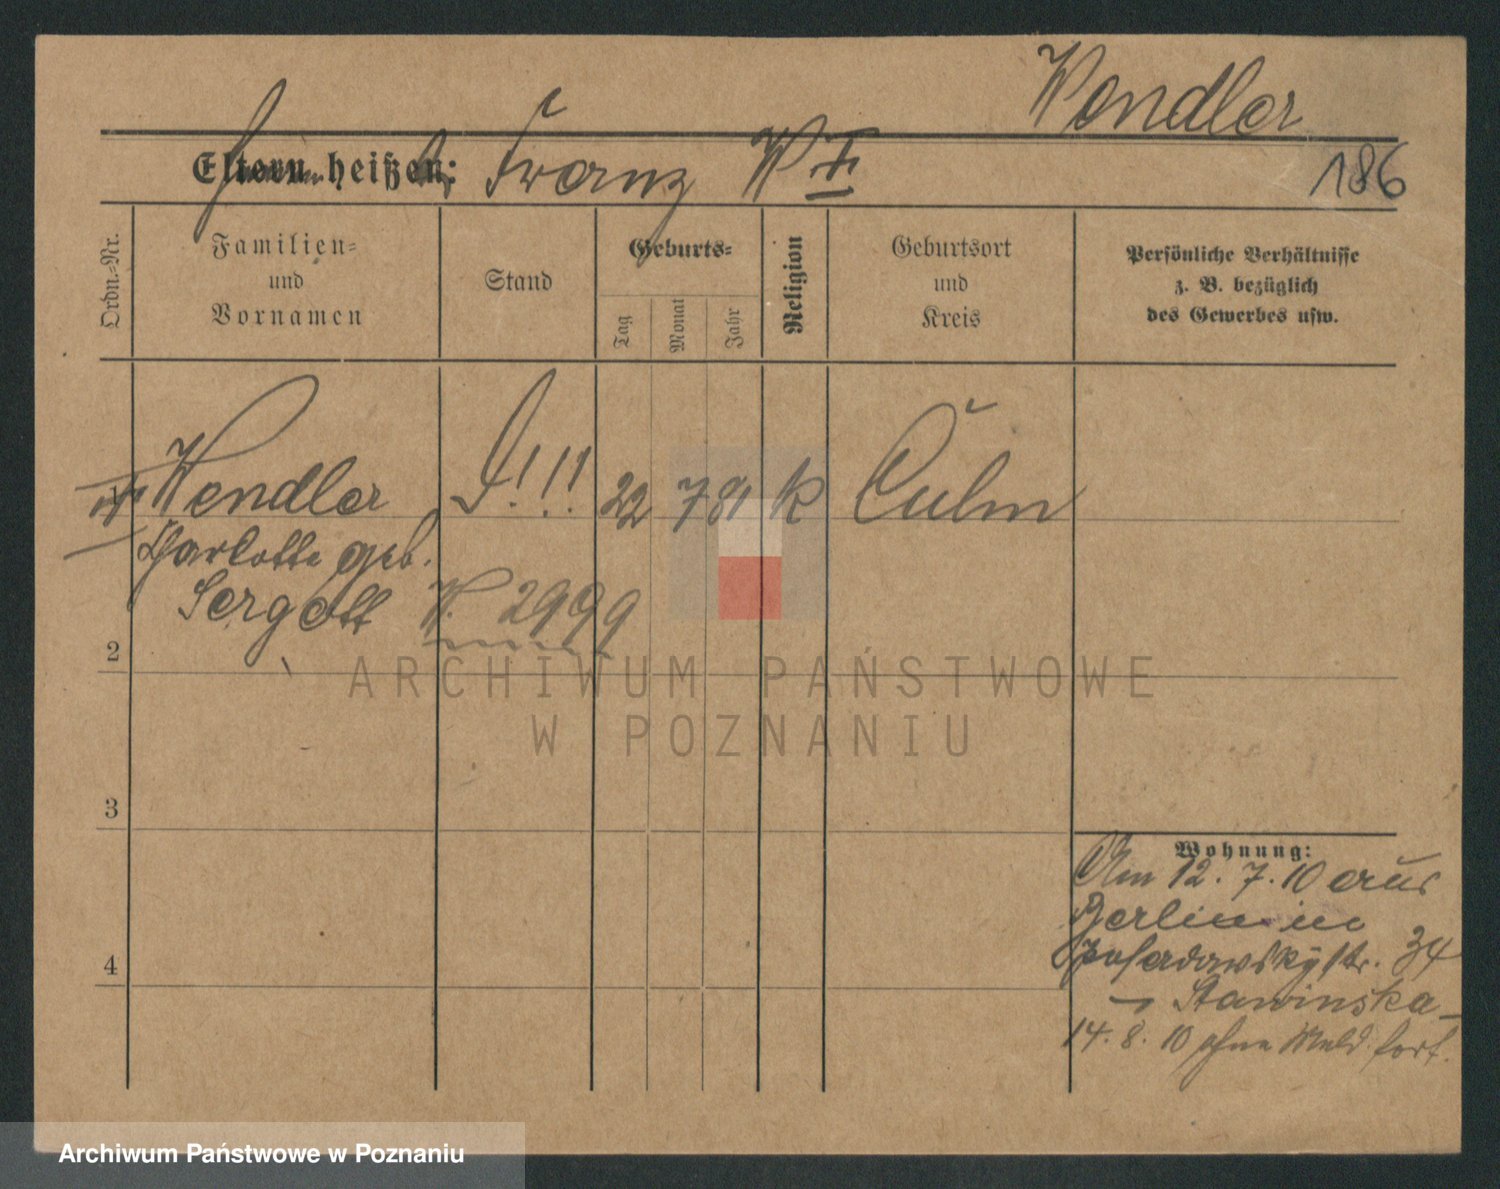 Wendler
Eltern heißen: Franz W
186
Ordn.-Nr.
Familien-
und
Vornamen
Stand
Geburts-
Tag
Monat
Jahr
Religion
Geburtsort
und
Kreis
Persönliche Verhältnisse
z. B. bezüglich
des Gewerbes usw.
Wendler
!!! 22 7 81 k Culm
Charlotte geb.
Sergott
W. 2999
2
ARCHIWUM PAŃSTWOWE
W POZNANIU
3
Wohnung:
Am 12. 7. 10 aus
Berlin in
Posadowskystr. 34
Stawinska
4
14. 8. 10 ohne Meld. fort.
Archiwum Państwowe w Poznaniu